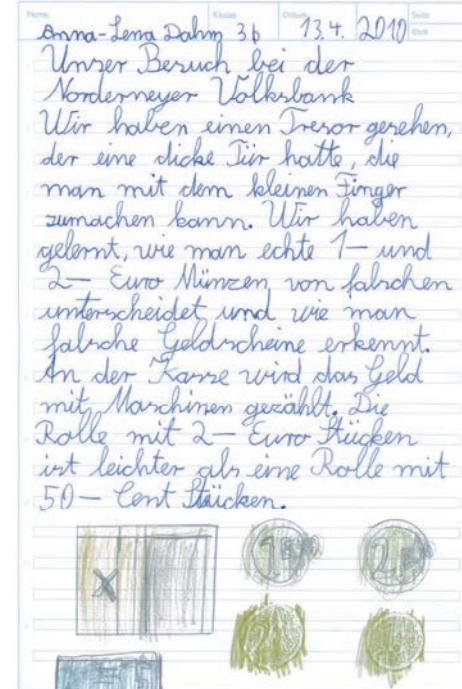 Name
Klasse
Datum
Seite
Blatt
Anna-Lena Dahm 3b 13.4. 2010
Unser Besuch bei der
Norderneyer Volksbank
Wir haben einen Tresor gesehen,
der eine dicke Tür hatte, die
man mit dem kleinen Finger
zumachen kann. Wir haben
gelernt, wie man echte 1– und
2– Euro Münzen von falschen
unterscheidet und wie man
falsche Geldscheine erkennt.
An der Kasse wird das Geld
mit Maschinen gezählt. Die
Rolle mit 2– Euro Stücken
ist leichter als eine Rolle mit
50– Cent Stücken.
X
1
2
2
1
5